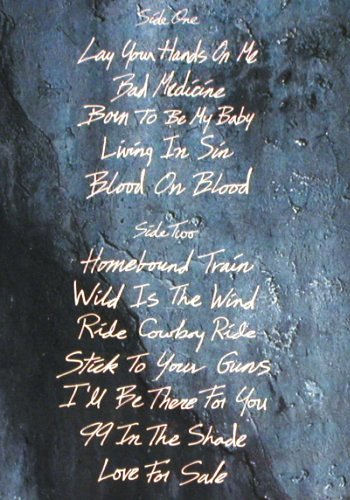 Side One
Lay Your Hands On Me
Bad Medicine
Born To Be My Baby
Living In Sin
Blood On Blood
Side Two
Homebound Train
Wild Is The Wind
Ride Cowboy Ride
Stick To Your Guns
I'll Be There For You
99 In The Shade
Love For Sale